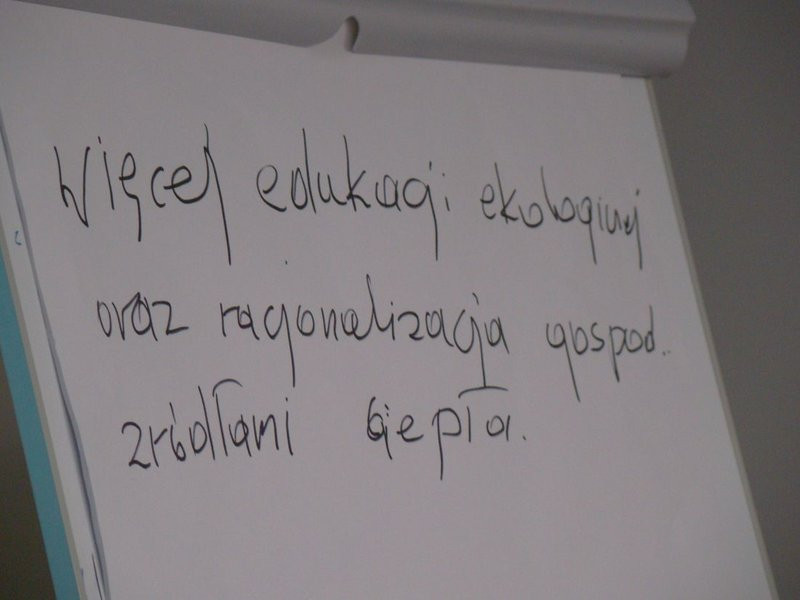 Więcej edukacji ekologicznej
oraz racjonalizacja gospod..
źródłami ciepła.